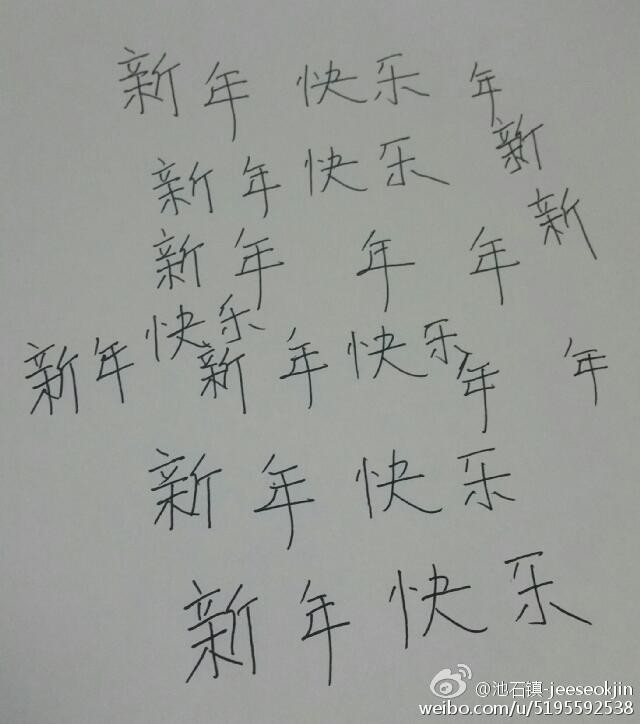 新年快乐 年
新年快乐 新
新
新年 年 年
快乐
新年 新年快乐 年 年
新年快乐
新年快乐
@池石镇-jeeseokjin
weibo.com/u/5195592538